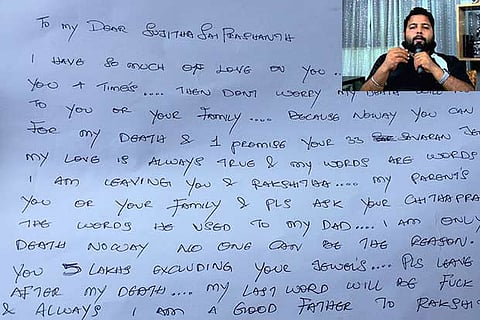 To my DEAR SUJITHA SAI PRASHANTH
I HAVE SO MUCH OF LOVE ON YOU ..
YOU 4 TIMES.... THEN DONT WORRY MY DEATH WILL
TO YOU OR YOUR FAMILY .... BECAUSE NOWAY YOU CAN
FOR MY DEATH & I PROMISE YOUR 33 SAVARAN JEW
MY LOVE IS ALWAYS TRUE & MY WORDS ARE WORDS
I AM LEAVING YOU & RAKSHITHA.... MY PARENTS
YOU OR YOUR FAMILY & PLS ASK YOUR CHITHAPPA
THE WORDS HE USED TO MY DAD.... I AM ONLY
DEATH NOWAY NO ONE CAN BE THE REASON.
YOU 5 LAKHS EXCLUDING YOUR JEWELS.... PLS LEAVE
AFTER MY DEATH.... MY LAST WORD WILL BE FUCK
& ALWAYS I AM A GOOD FATHER TO RAKSHI